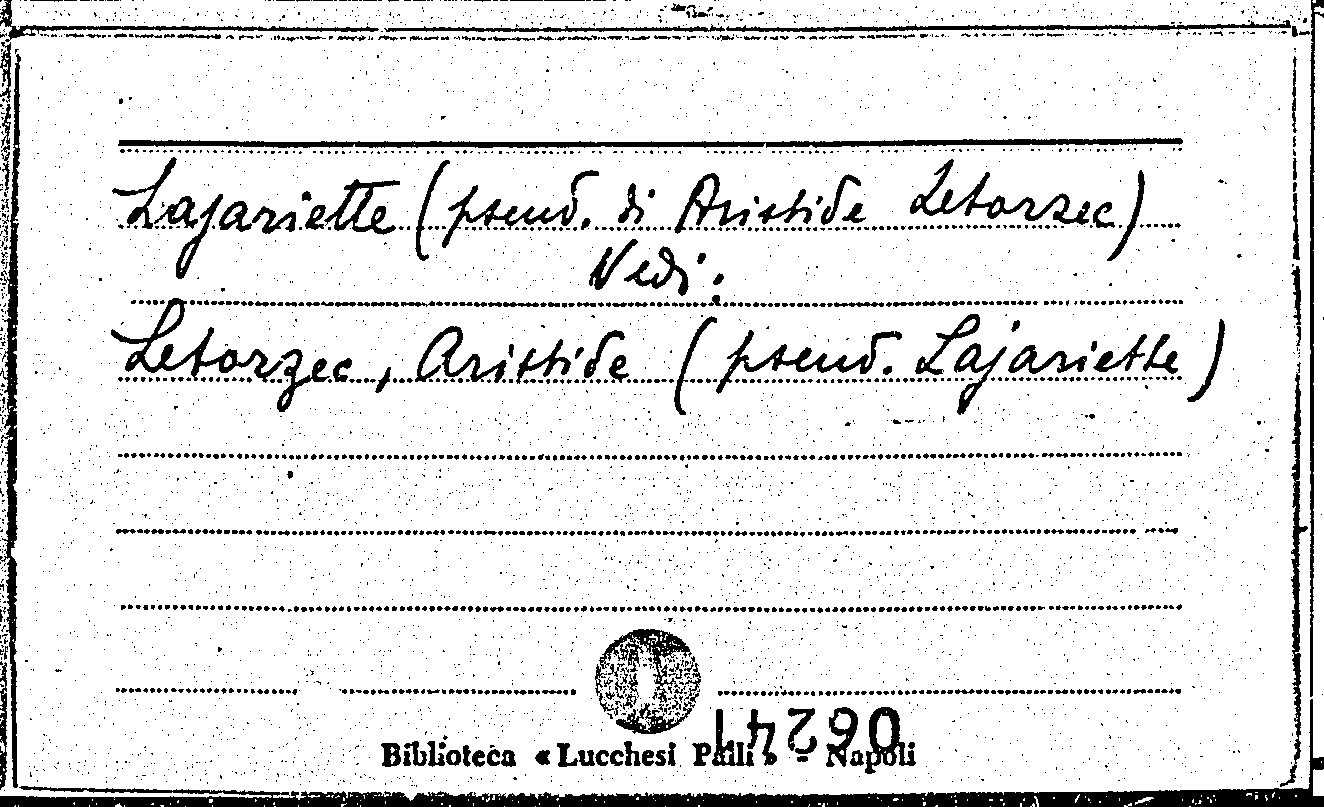 Lajariette (pseud. di Aristide Letorzec)
Vedi:
Letorzec, Aristide (pseud. Lajariette)
06241
Biblioteca « Lucchesi Palli » - Napoli